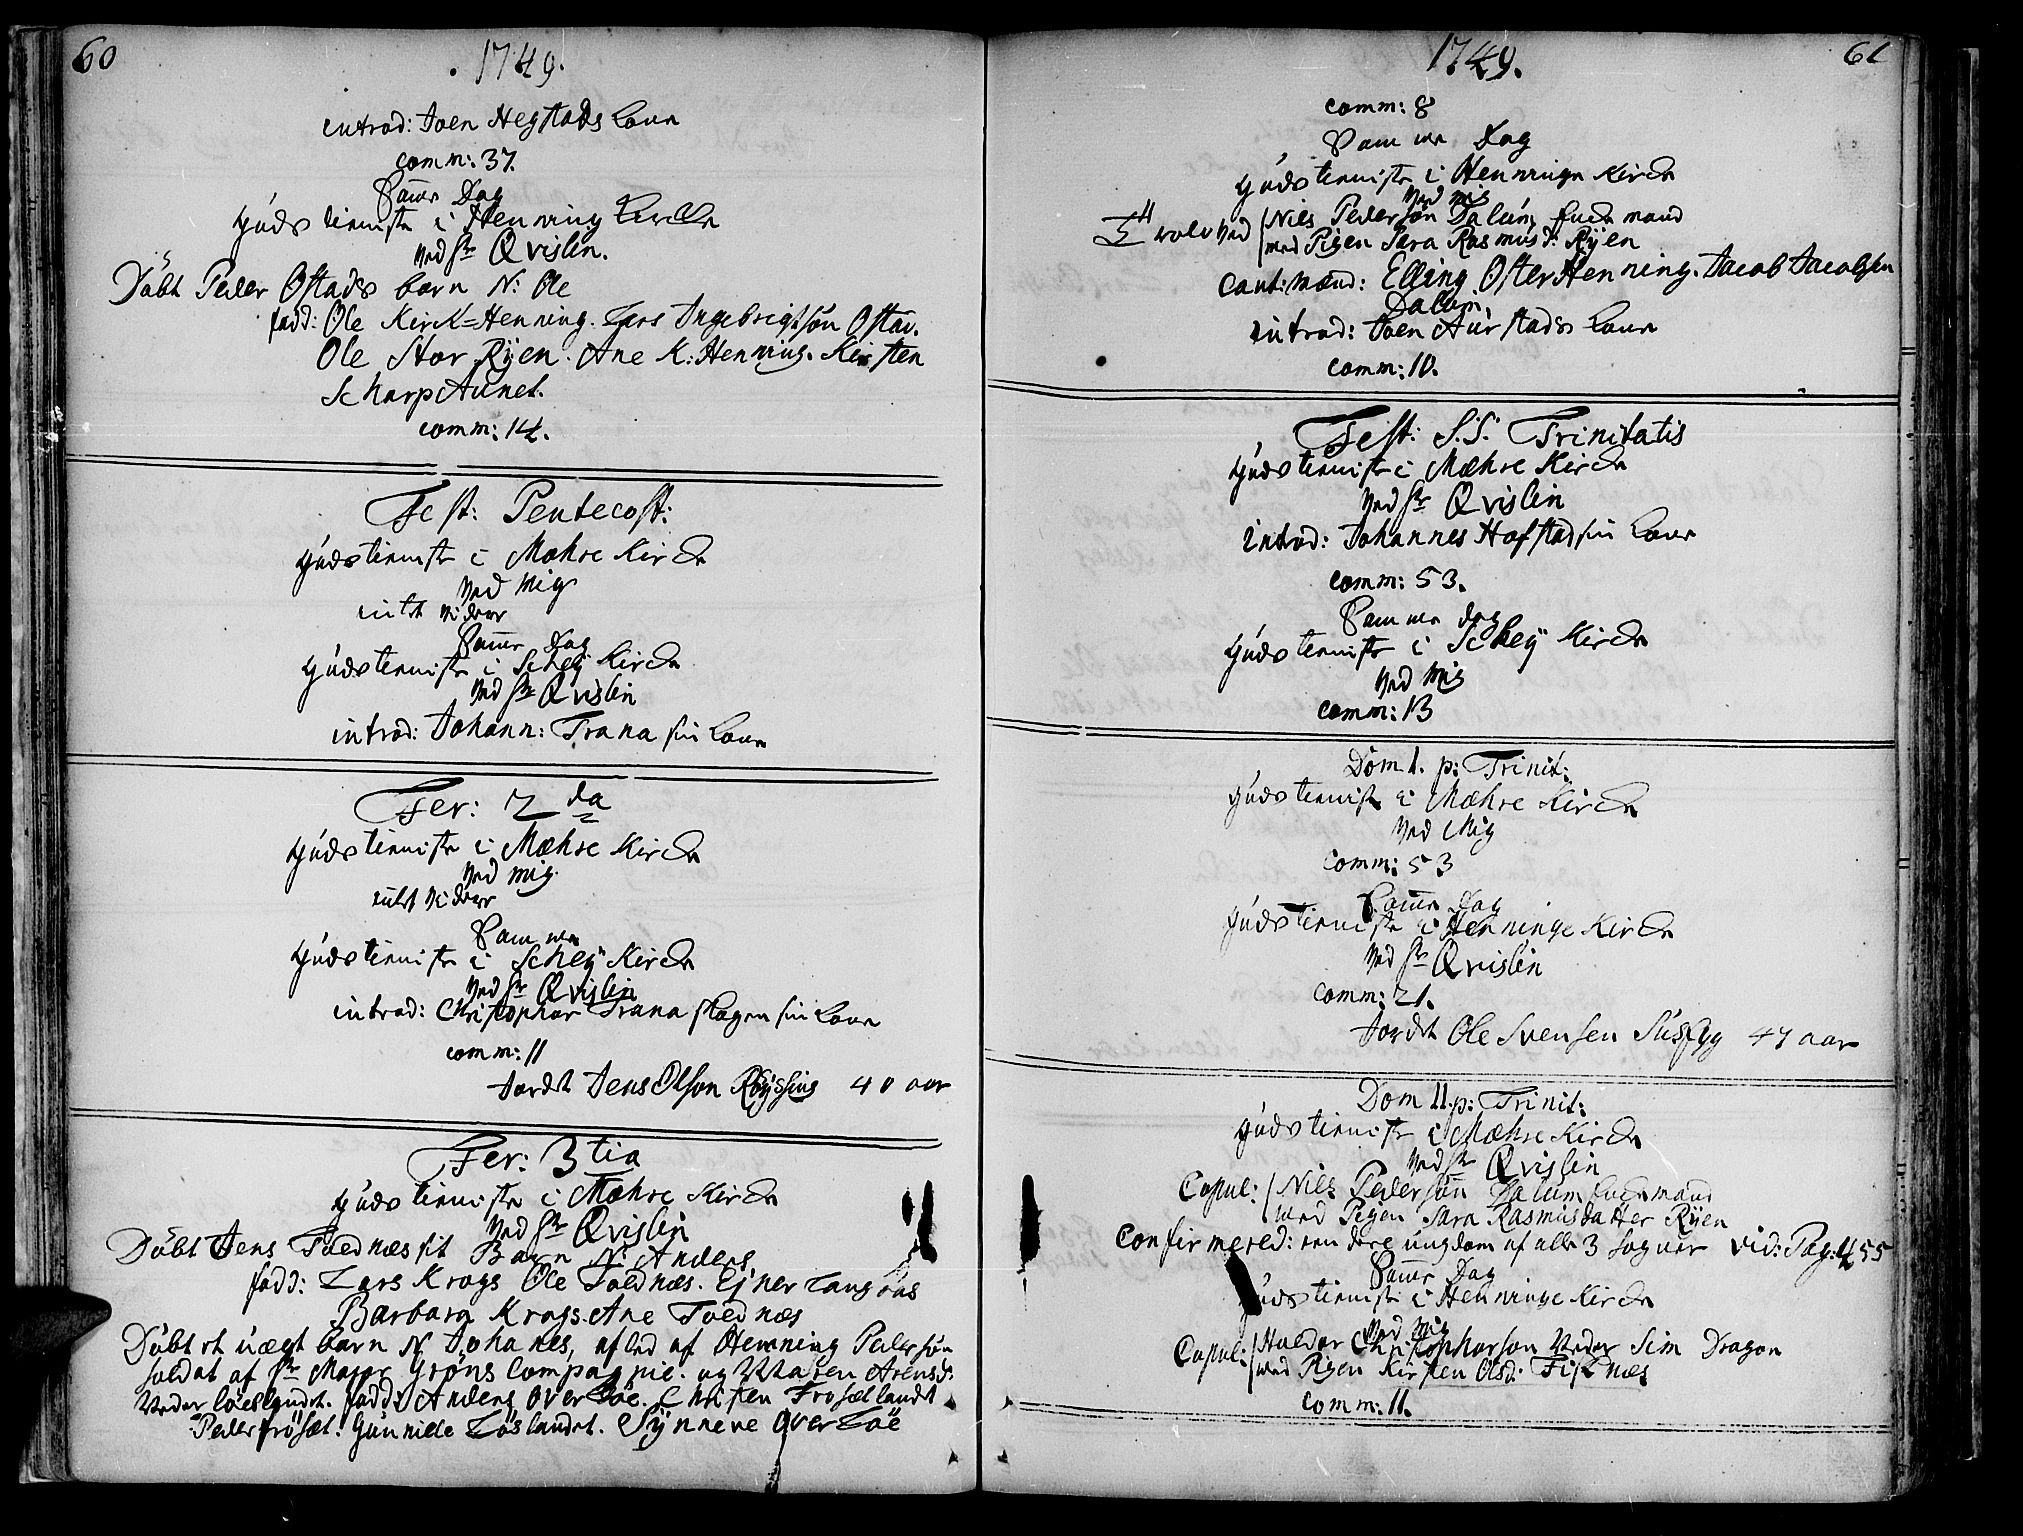 60
1749.
introd: Joen Hegstads Kone
comm: 37.
Samme Dag
Gudstieniste i Henning Kircke
ved Hr Qvislin.
Döbt Peder Ostads barn N: Ole
fadd: Ole Kirk=Henning. Lars Ingebrigtsön Ostad.
Ole Stor Ryen. Ane K: Henning. Kirsten
Scharp Aunet.
comm: 14.
Fest: Pentecost:
Gudstieniste i Mæhre Kirche
ved mig
intet videre
Samme Dag
Gudstieniste i Schey Kirche
ved Hr Qvislin
introd: Johann: Trana sin Kone
Fer: 2da
Gudstieniste i Mæhre Kirche
ved mig.
intet videre
Samme
Gudstieniste i Schey Kirche
ved Hr Qvislin
introd: Christopher Trana sin Kone
comm: 11
Jordet Jens Olson 40 aar
Fer: 3tia
Gudstieniste i Mæhre Kirche
ved Hr Qvislin
Döbt Jens Toednes sit Barn N: Anders
fadd: Lars Krogs Ole Toednæs. Ejner Langöas
Barbara Krogs. Ane Toednæs
Döbt et uægt barn N Johanes, afled af Henning Pedersön
soldat af Hr Major Gröns Compagnie. og Maren Arensd:
fadd: Anders Over Löe. Christen Frosetlandet
Peder frösæt. Gunnille Löslandet. Synneve Over Löe
1749.
61
comm: 8
Samme Dag
Gudstieniste i Henninge Kirche
ved mig
Troloved Niels Pedersön Dalum Enckemand
med Pigen Sara Rasmusd: Ryen
Caut: mænd: Elling Oster Henning. Jacob Jacobsen
Dalum.
introd: Joen Aurstads Kone
comm: 10.
Fest: S.S. Trinitatis
Gudstieniste i Mæhre Kirche
ved Hr Qvislin
introd: Johannes Hofstad sin Kone
comm: 53.
Samme dag
Gudstieniste i Schey Kirche
ved mig
comm: 13
Dom 1. p: Trinit:
Gudstieniste i Mæhre Kirche
ved Mig
comm: 53
Samme Dag
Gudstieniste i Henninge Kirche
ved Hr Qvislin
comm: 21.
Jordet Ole Svensen 47 aar
Dom II. p: Trinit:
Gudstieniste i Mæhre Kirche
ved Hr Qvislin
Copul: Niels Pedersön Dalum Enckemand
med Pigen Sara Rasmusdatter Ryen
Confirmered: en dere ungdom af alle 3 sogner vid: Pag: 455
Samme Dag
Gudstieniste i Henninge Kirche
ved Mig
Copul: Haldor Christopherson Dragon
med Pigen Kirsten Olsd: Fisknæs
comm: 11.